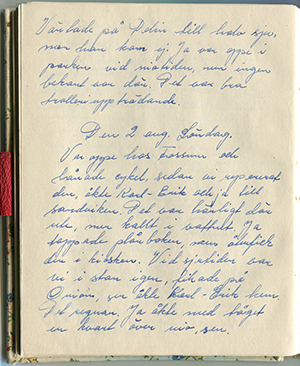 Väntade på Polin till halv sju,
men han kom ej. Ja var oppe i
parken vid niotiden, men ingen
bekant var där. Det var bra
trolleriuppträdande.
Den 2 aug. Söndag.
Var oppe hos Forssun och
lånade cykel, sedan vi reparerat
den, åkte Karl-Erik och ja till
sandviken. Det var härligt där
ute, men kallt i vattnet. Ja
tappade plånboken, men återfick
den i kiosken. Vid sjutiden var
vi i stan igen, fikade på
Onion, sen åkte Karl-Erik hem.
Det regnar. Ja åkte med tåget
en kvart över nio, sen.